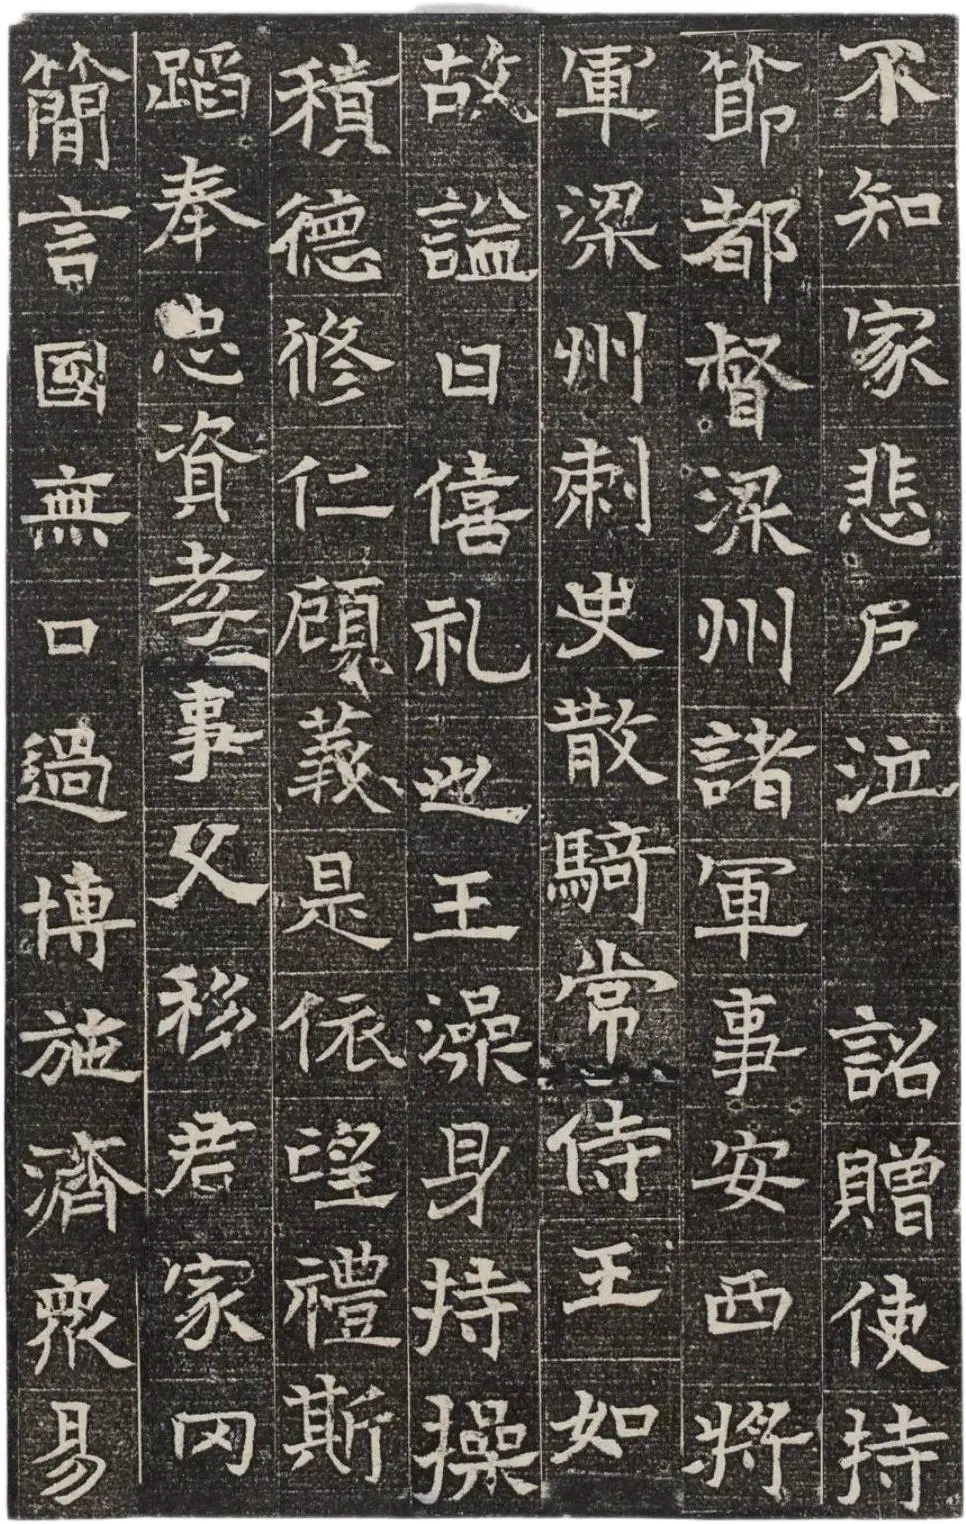 不知家悲户泣　詔贈使持
節都督梁州諸軍事安西將
軍梁州刺史散騎常侍王如
故謚曰僖礼也王澡身持操
積德修仁顧義是依望禮斯
蹈奉忠資孝事父移君家冈
簡言國無口過博施濟眾易